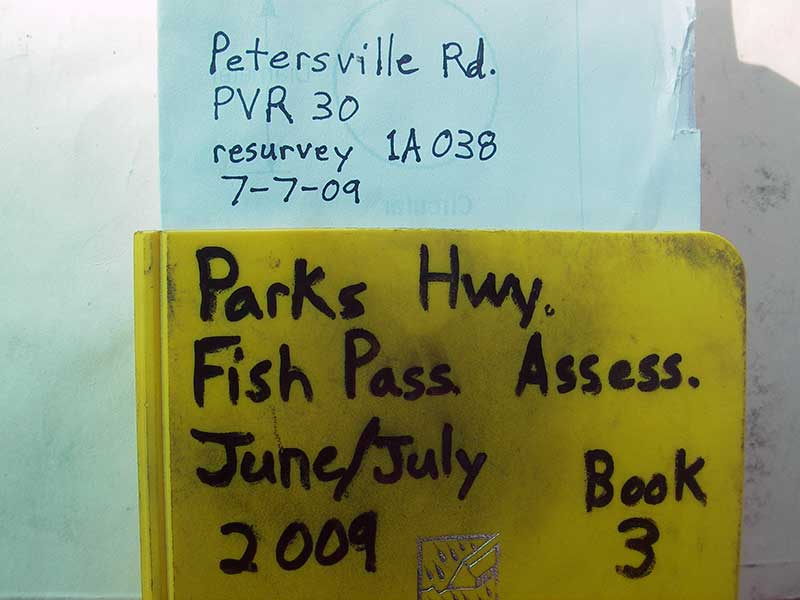 Petersville Rd.
PVR 30
resurvey 1A 038
7-7-09
Circular
Parks Hwy.
Fish Pass. Assess.
June/July
Book
2009
3